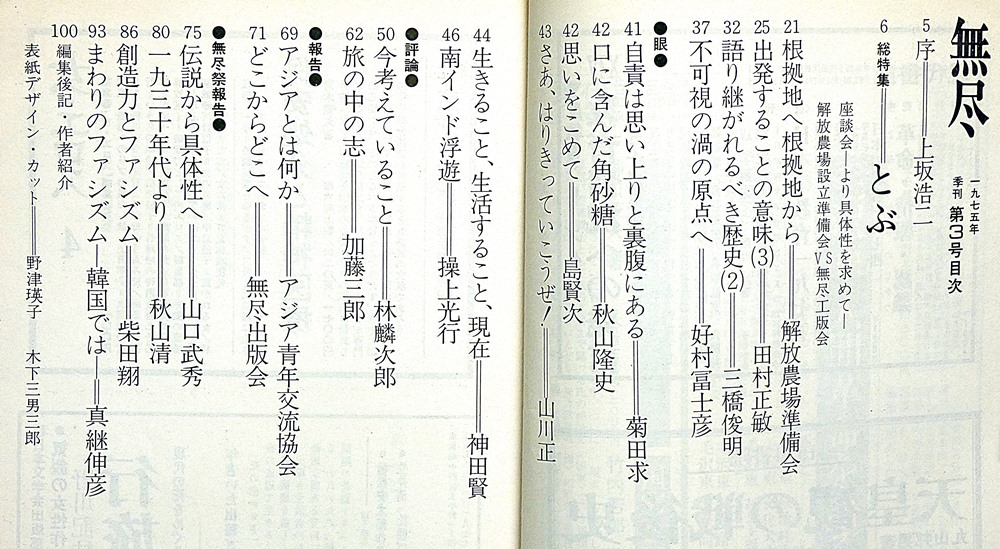 無尽
一九七五年
季刊 第3号目次
5 序――上坂浩二
6 総特集――とぶ
座談会―より具体性を求めて―
解放農場設立準備会VS無尽工版会
21 根拠地へ根拠地から――解放農場準備会
25 出発することの意味(3)――田村正敏
32 語り継がれるべき歴史(2)――三橋俊明
37 不可視の渦の原点へ――好村冨士彦
●眼●
41 自責は思い上りと裏腹にある――菊田求
42 口に含んだ角砂糖――秋山隆史
42 思いをこめて――島賢次
43 さあ、はりきっていこうぜ!――山川正
44 生きること、生活すること、現在――神田賢
46 南インド浮遊――操上光行
●評論●
50 今考えていること――林麟次郎
62 旅の中の志――加藤三郎
●報告●
69 アジアとは何か――アジア青年交流協会
71 どこからどこへ――無尽出版会
●無尽祭報告●
75 伝説から具体性へ――山口武秀
80 一九三十年代より――秋山清
86 創造力とファシズム――柴田翔
93 まわりのファシズム―韓国では――真継伸彦
100 編集後記・作者紹介
表紙デザイン・カット――野津瑛子 木下三男三郎